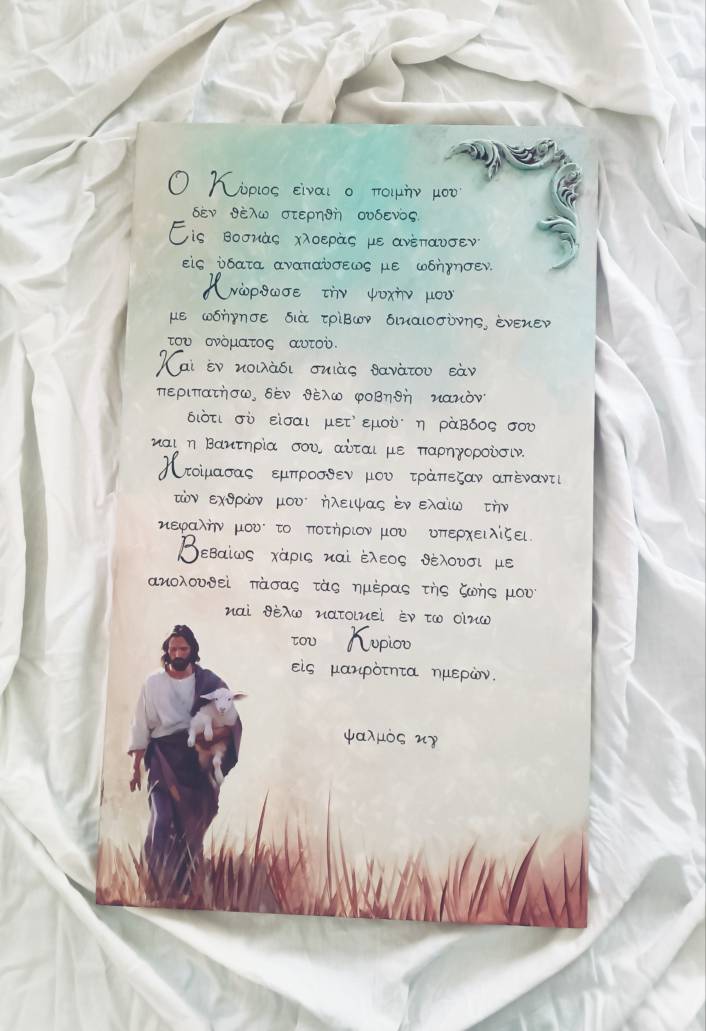 Ο Κὺριος εὶναι ο ποιμὴν μου·
δὲν θὲλω στερηθὴ ουδενὸς.
Εὶς βοσκὰς χλοερὰς με ανὲπαυσεν·
εὶς ὺδατα αναπαὺσεως με ωδὴγησεν.
Ηνὼρθωσε τὴν ψυχὴν μου·
με ωδὴγησε διὰ τρὶβων δικαιοσὺνης, ἐνεκεν
του ονὸματος αυτοὺ.
Καὶ ἐν κοιλὰδι σκιὰς θανὰτου εὰν
περιπατὴσω, δὲν θὲλω φοβηθὴ κακὸν·
διὸτι σὺ εὶσαι μετ' εμοὺ· η ρὰβδος σου
και η βακτηρὶα σου, αὺται με παρηγοροὺσιν.
Ητοὶμασας εμπροσθεν μου τρὰπεζαν απὲναντι
τὼν εχθρὼν μου· ὴλειψας ἐν ελαὶω τὴν
κεφαλὴν μου· το ποτὴριον μου υπερχειλὶζει.
Βεβαὶως χὰρις καὶ ὲλεος θὲλουσι με
ακολουθεὶ πὰσας τὰς ημὲρας τὴς ζωὴς μου·
καὶ θὲλω κατοικεὶ ἐν τω οὶκω
του Κυρὶου
εὶς μακρὸτητα ημερὼν.
ψαλμὸς κγ